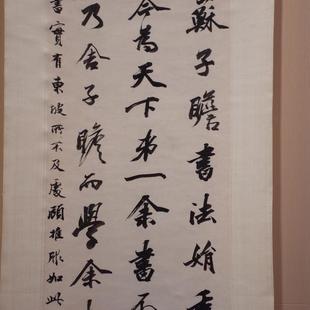 蘇子瞻書法娟秀
今為天下第一余書不
乃舍子瞻而學余
書實有東坡所不及處顧推服如此